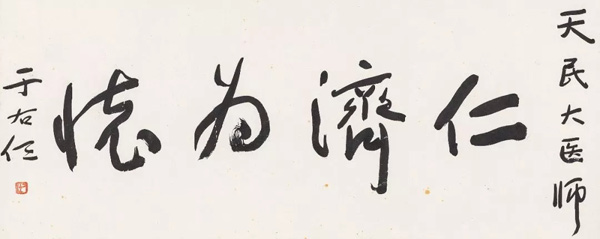 天民大医师
仁濟为懷
于右任